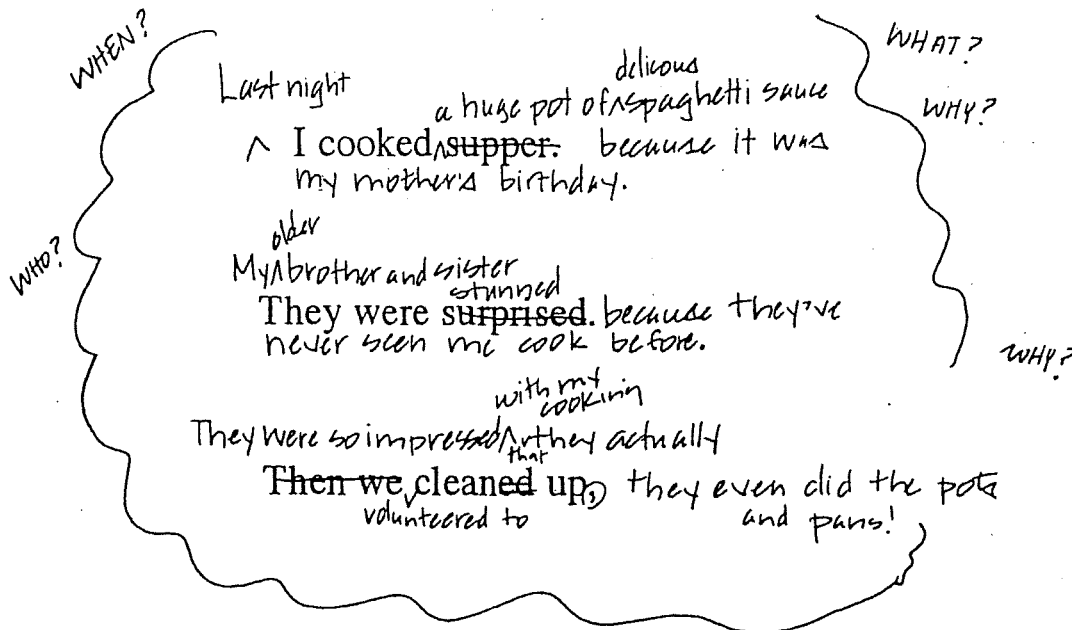 WHEN?
WHAT?
delicous
Last night
a huge pot of ^ spaghetti sauce
WHY?
^ I cooked ^ supper. because it was
my mother's birthday.
older
WHO?
My ^ brother and sister
stunned
They were surprised. because they've
never seen me cook before.
WHY?
with my
cooking
They were so impressed ^ they actually
that
Then we cleaned up, they even did the pots
volunteered to
and pans!